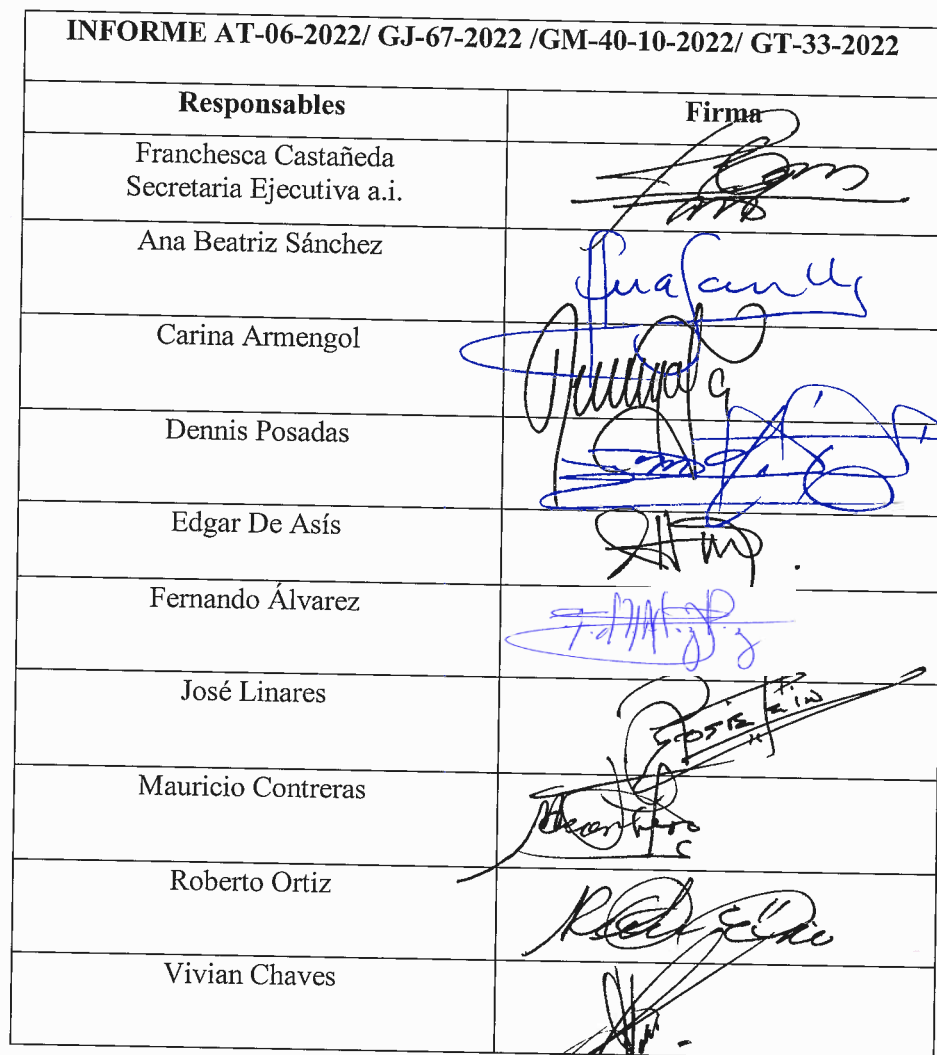 INFORME AT-06-2022/ GJ-67-2022 /GM-40-10-2022/ GT-33-2022
Responsables Firma
Franchesca Castañeda
Secretaria Ejecutiva a.i.
Ana Beatriz Sánchez
Carina Armengol
Dennis Posadas
Edgar De Asís
Fernando Álvarez
José Linares
Mauricio Contreras
Roberto Ortiz
Vivian Chaves